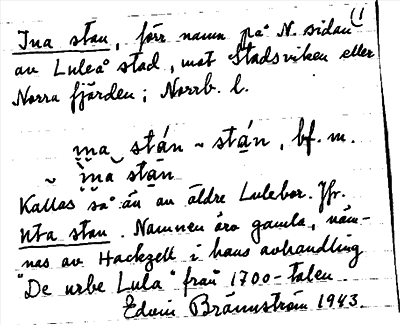 (1
Ina stan, förr namn på N. sidan
av Luleå stad, mot Stadsviken eller
Norra fjärden; Norrb. l.
ina stán ~ stán, bf. m.
~ ina stan
Kallas så än av äldre Lulebor. Jfr.
Uta stan. Namnen äro gamla, näm-
nas av Hackzell i hans avhandling
"De urbe Lula" från 1700-talen
Edvin Brännström 1943.